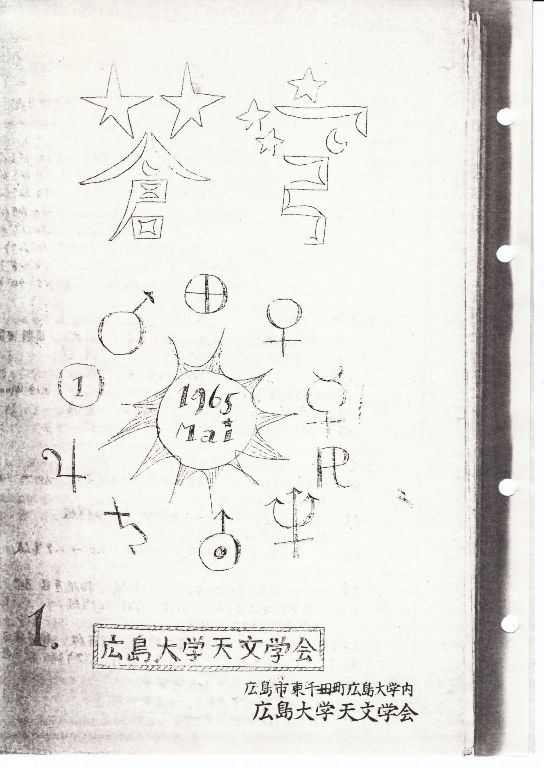 蒼穹
1
1965
Mai
1.
広島大学天文学会
広島市東千田町広島大学内
広島大学天文学会